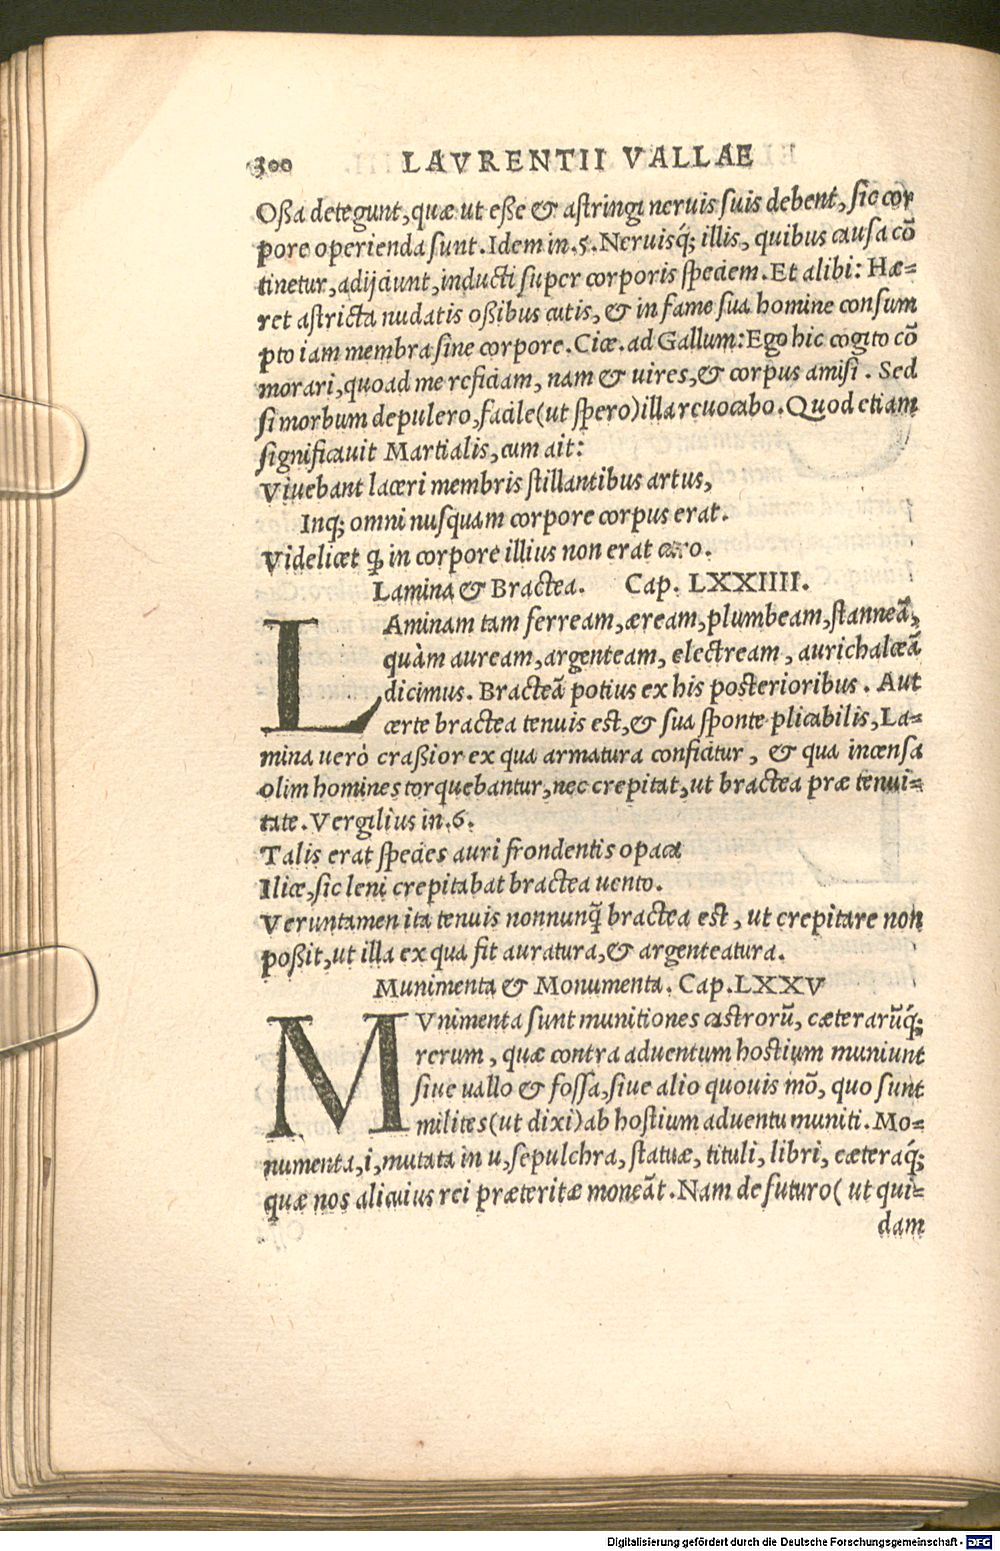 300 LAVRENTII VALLAE
Oßa detegunt, quæ ut eße & astringi neruis suis debent, sic cor
pore operienda sunt. Idem in .5. Neruisq́; illis, quibus causa cō
tinetur, adijciunt, inducti super corporis speciem. Et alibi: Hæ=
ret astricta nudatis oßibus cutis, & in fame sua homine consum
pto iam membra sine corpore. Cice. ad Gallum: Ego hic cogito cō
morari, quoad me reficiam, nam & uires, & corpus amisi. Sed
si morbum depulero, facile (ut spero) illa reuocabo. Quod etiam
significauit Martialis, cum ait:
Viuebant laceri membris stillantibus artus,
Inq; omni nusquam corpore corpus erat.
Videlicet ꝙ in corpore illius non erat caro.
Lamina & Bractea. Cap. LXXIIII.
LAminam tam ferream, æream, plumbeam, stanneā,
quàm auream, argenteam, electream, aurichalceā
dicimus. Bracteā potius ex his posterioribus. Aut
certe bractea tenuis est, & sua sponte plicabilis, La=
mina uerò craßior ex qua armatura conficitur, & qua incensa
olim homines torquebantur, nec crepitat, ut bractea præ tenui=
tate. Vergilius in .6.
Talis erat species auri frondentis opaca
Ilice, sic leni crepitabat bractea uento.
Veruntamen ita tenuis nonnunq̄ bractea est, ut crepitare non
poßit, ut illa ex qua fit auratura, & argenteatura.
Munimenta & Monumenta. Cap. LXXV
MVnimenta sunt munitiones castrorū, cæterarūq́;
rerum, quæ contra aduentum hostium muniunt
siue uallo & fossa, siue alio quouis mō, quo sunt
milites (ut dixi) ab hostium aduentu muniti. Mo=
numenta, i, mutata in u, sepulchra, statuæ, tituli, libri, cæteraq́;
quæ nos alicuius rei præteritæ moneāt. Nam de futuro (ut qui=
dam
Digitalisierung gefördert durch die Deutsche Forschungsgemeinschaft - DFG